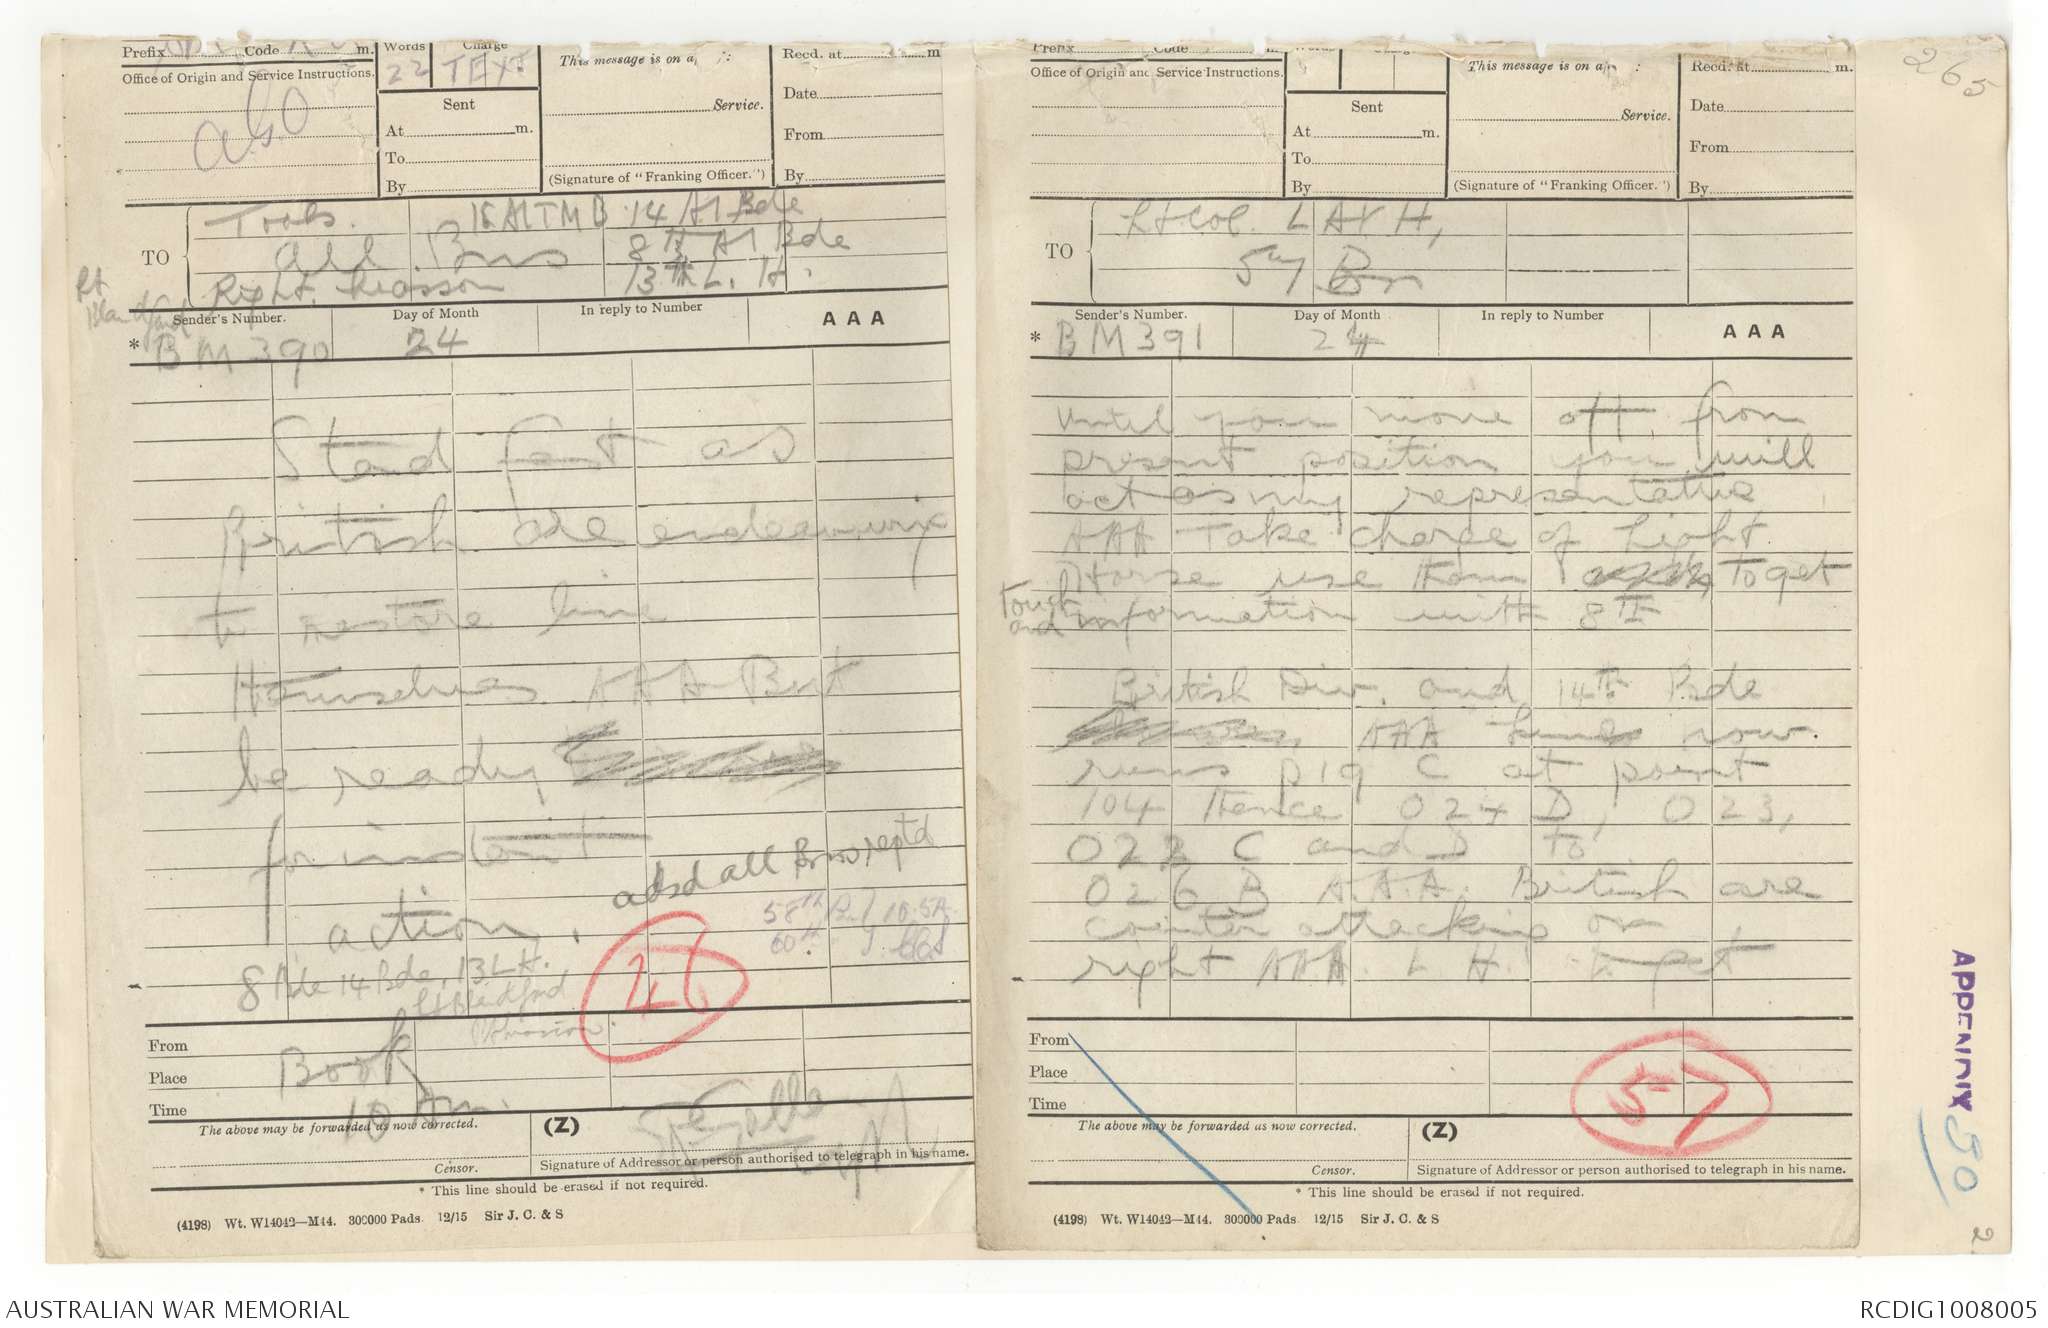 Prefix Code m.
Words
Charge
22 TEXT
Office of Origin and Service Instructions.
Sent
At m.
To
By
This message is on a :
Service.
(Signature of "Franking Officer.")
Recd. at m
Date
From
By
TO
Tools. 15 AlTMB 14 Al Bde
all Bns 8th Al Bde
Right Liasson 13th L. H.
Lt
Blandford
Sender's Number.
Day of Month
In reply to Number
AAA
* BM 390
24
Stand fast as
British are endeavouring
to restore line
themselves AAA But
be ready
for instant
action.
adsd all Bns reptd
8 Bde 14 Bde, 13 L H.
Lt Blandford
58th
60th
46
From
Place
Time
Book
10 Am.
The above may be forwarded as now corrected.
(Z)
Censor.
Signature of Addressor or person authorised to telegraph in his name.
* This line should be erased if not required.
(4198) Wt. W14042—M44. 300000 Pads. 12/15 Sir J. C. & S
265
Prefix Code m.
Office of Origin and Service Instructions.
Sent
At m.
To
By
This message is on a :
Service.
(Signature of "Franking Officer.")
Recd. at m.
Date
From
By
TO
Lt Col. LAYH,
57 Bn
Sender's Number.
Day of Month
In reply to Number
AAA
* BM 391
24
Until you move off from
present position you will
act as my representative
AAA Take charge of Light
Horse use them to get
Touch and information with 8th
British Div. and 14th Bde
AAA Line now
runs P19 C at point
104 thence O24 D, O23,
O22 C and D to
O26 B AAA. British are
counter attacking on
right AAA L H
57
From
Place
Time
The above may be forwarded as now corrected.
(Z)
Censor.
Signature of Addressor or person authorised to telegraph in his name.
* This line should be erased if not required.
(4198) Wt. W14042—M44. 300000 Pads. 12/15 Sir J. C. & S
APPENDIX 50
2
AUSTRALIAN WAR MEMORIAL
RCDIG1008005